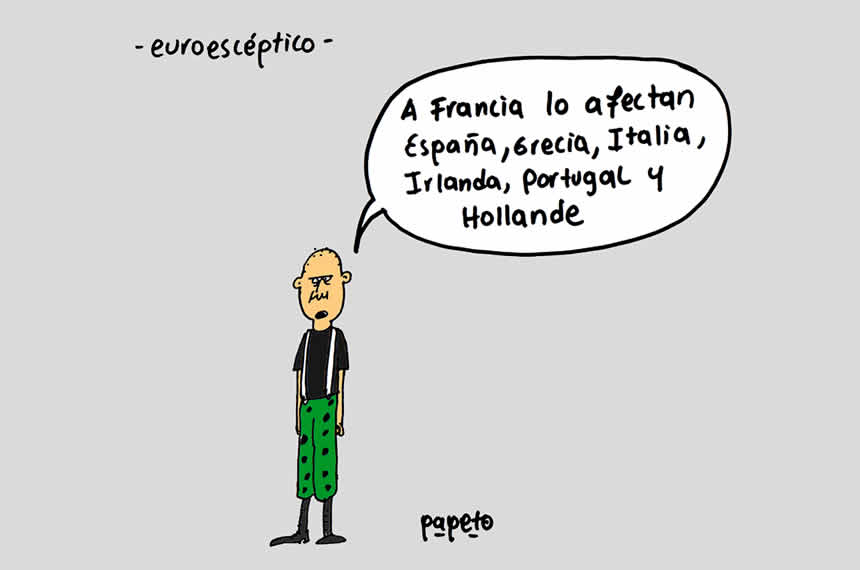 - euroescéptico -
A Francia lo afectan
España, Grecia, Italia,
Irlanda, Portugal y
Hollande
papeto